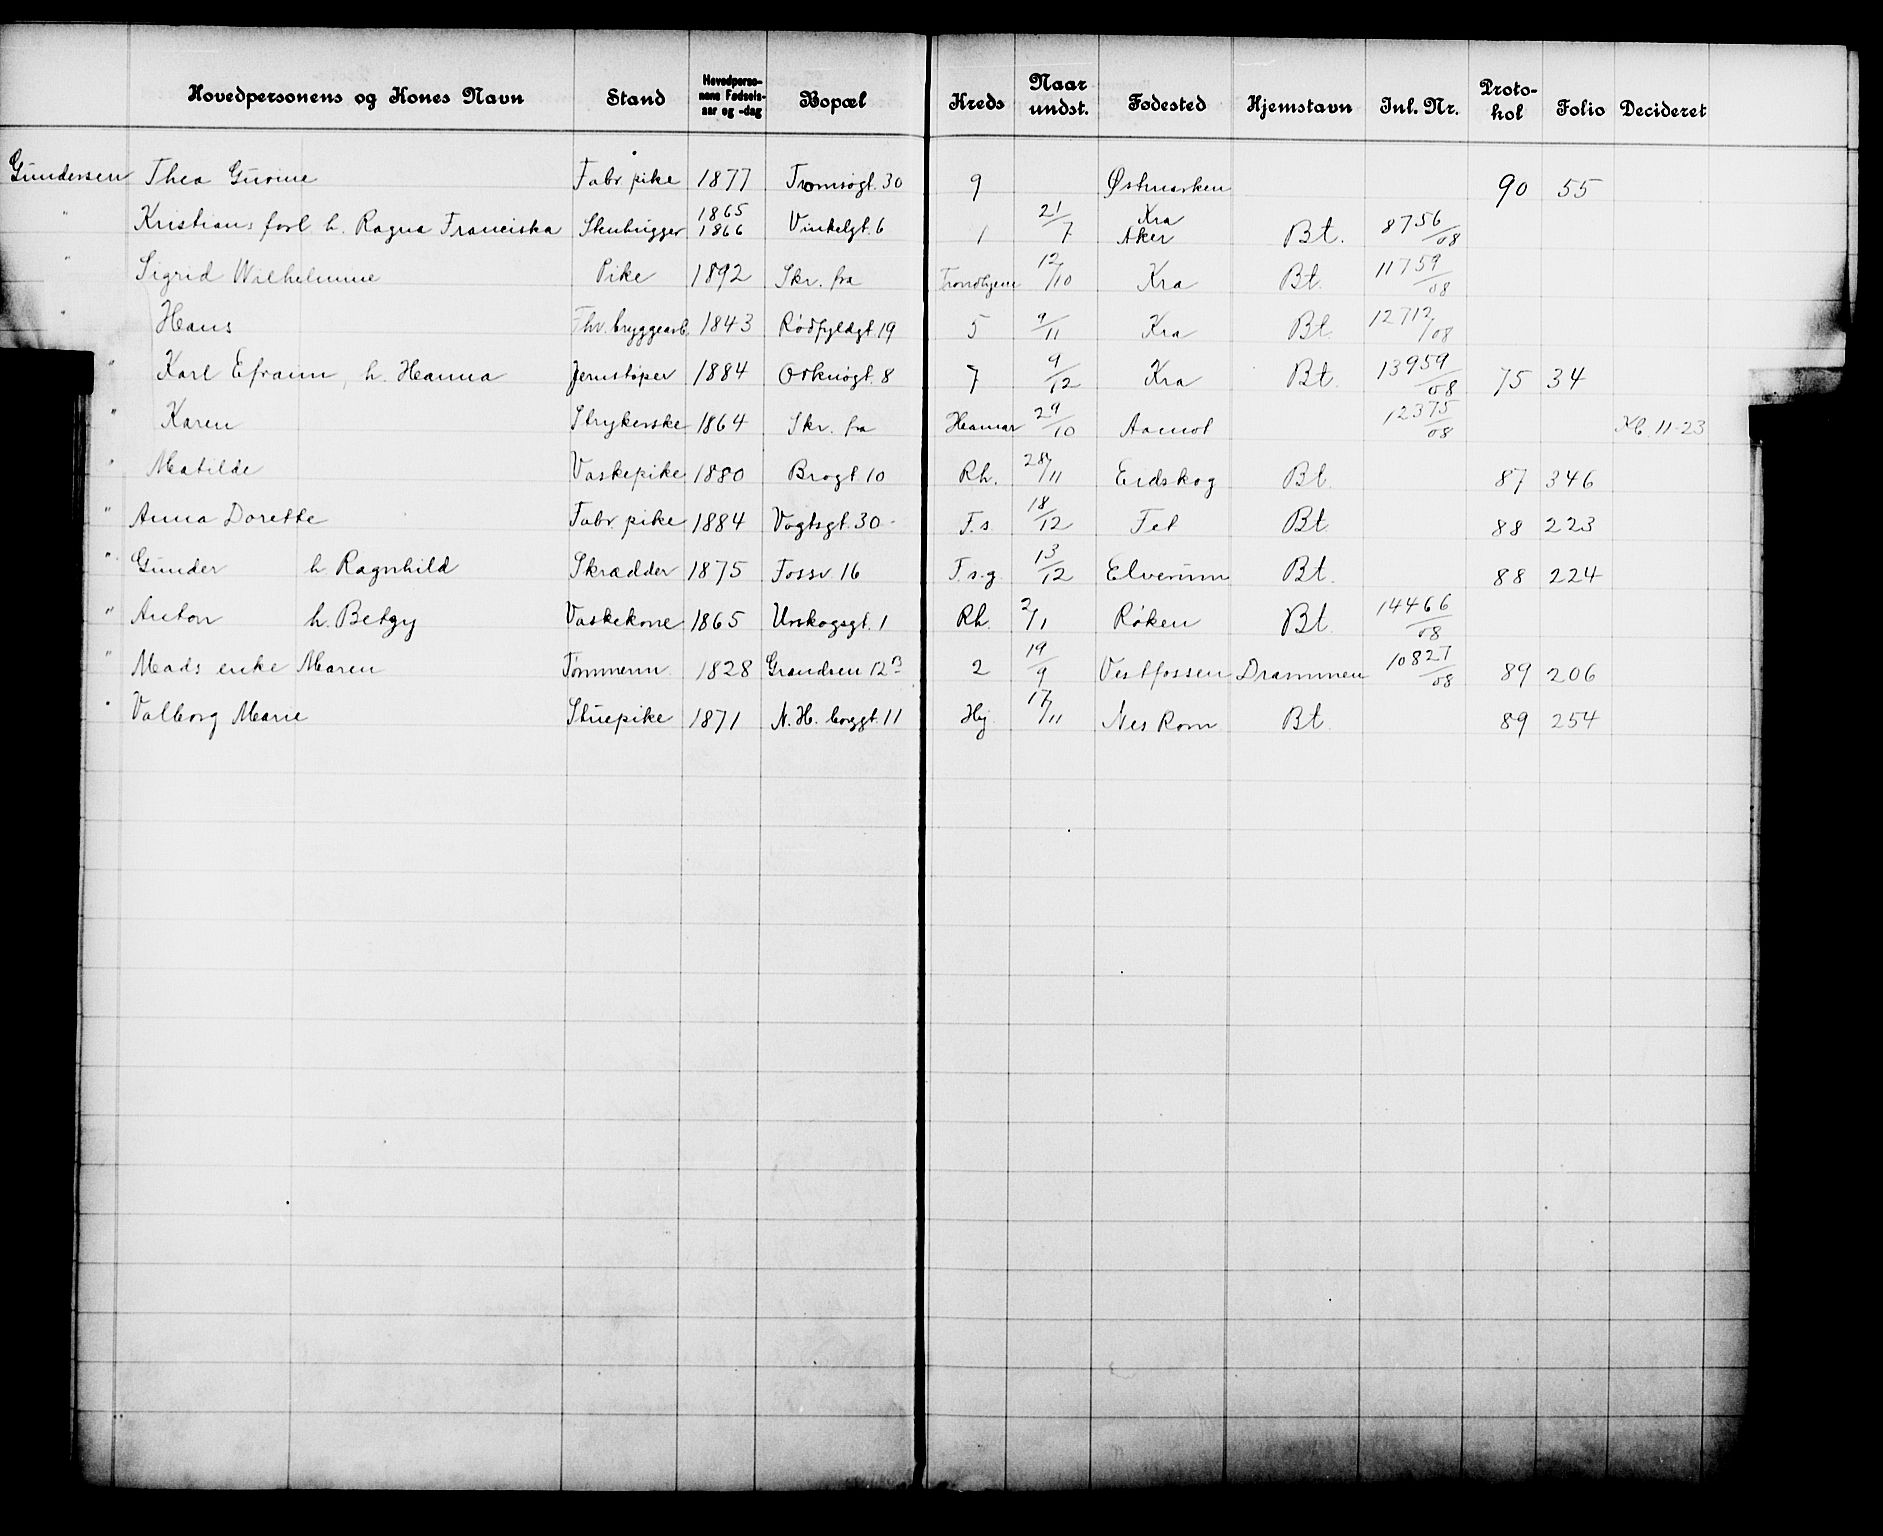 Hovedpersonens og Kones Navn Stand Hovedperso-nens Fødsels-aar og -dag Bopæl Kreds Naar undst. Fødested Hjemstavn Inl. Nr. Proto-kol Folio Decideret
Gundersen Thea Gurine Fabr pike 1877 Tromsøgt. 30 9 Østmarken 90 55
" Kristians forl h. Ragna Franciska Stenhugger 1865 1866 Vinkelgt. 6 1 21/7 Kra Aker Bt. 8756/08
" Sigrid Wilhelmine Pike 1892 Skr. fra Trondhjem 12/10 Kra Bt. 11759/08
" Hans Fhv. bryggearb. 1843 Rødfyldgt 19 5 9/11 Kra Bt. 12712/08
" Karl Efraim, h. Hanna Jernstøper 1884 Orknøgt. 8 7 9/12 Kra Bt. 13959/08 75 34
" Karen Strykerske 1864 Skr. fra Hamar 29/10 Aamot 12375/08 11-23
" Matilde Vaskepike 1880 Brogt 10 Rh. 28/11 Eidskog Bt. 87 346
" Anna Dorette Fabr. pike 1884 Vogtsgt. 30 T.s. 18/12 Fet Bt 88 223
" Gunder h. Ragnhild Skrædder 1875 Fossv 16 T.s.g. 13/12 Elverum Bt. 88 224
" Anton h. Betzy Vaskekone 1865 Urskogsgt. 1 Rh. 2/1 Røken Bt. 14466/08
" Mads enke Maren Tømmerm. 1828 Grændsen 12 B 2 19/9 Vestfossen Drammen 10827/08 89 206
" Valborg Marie Stuepike 1871 N. H. borggt. 11 Hj. 17/11 Nes Rom Bt. 89 254